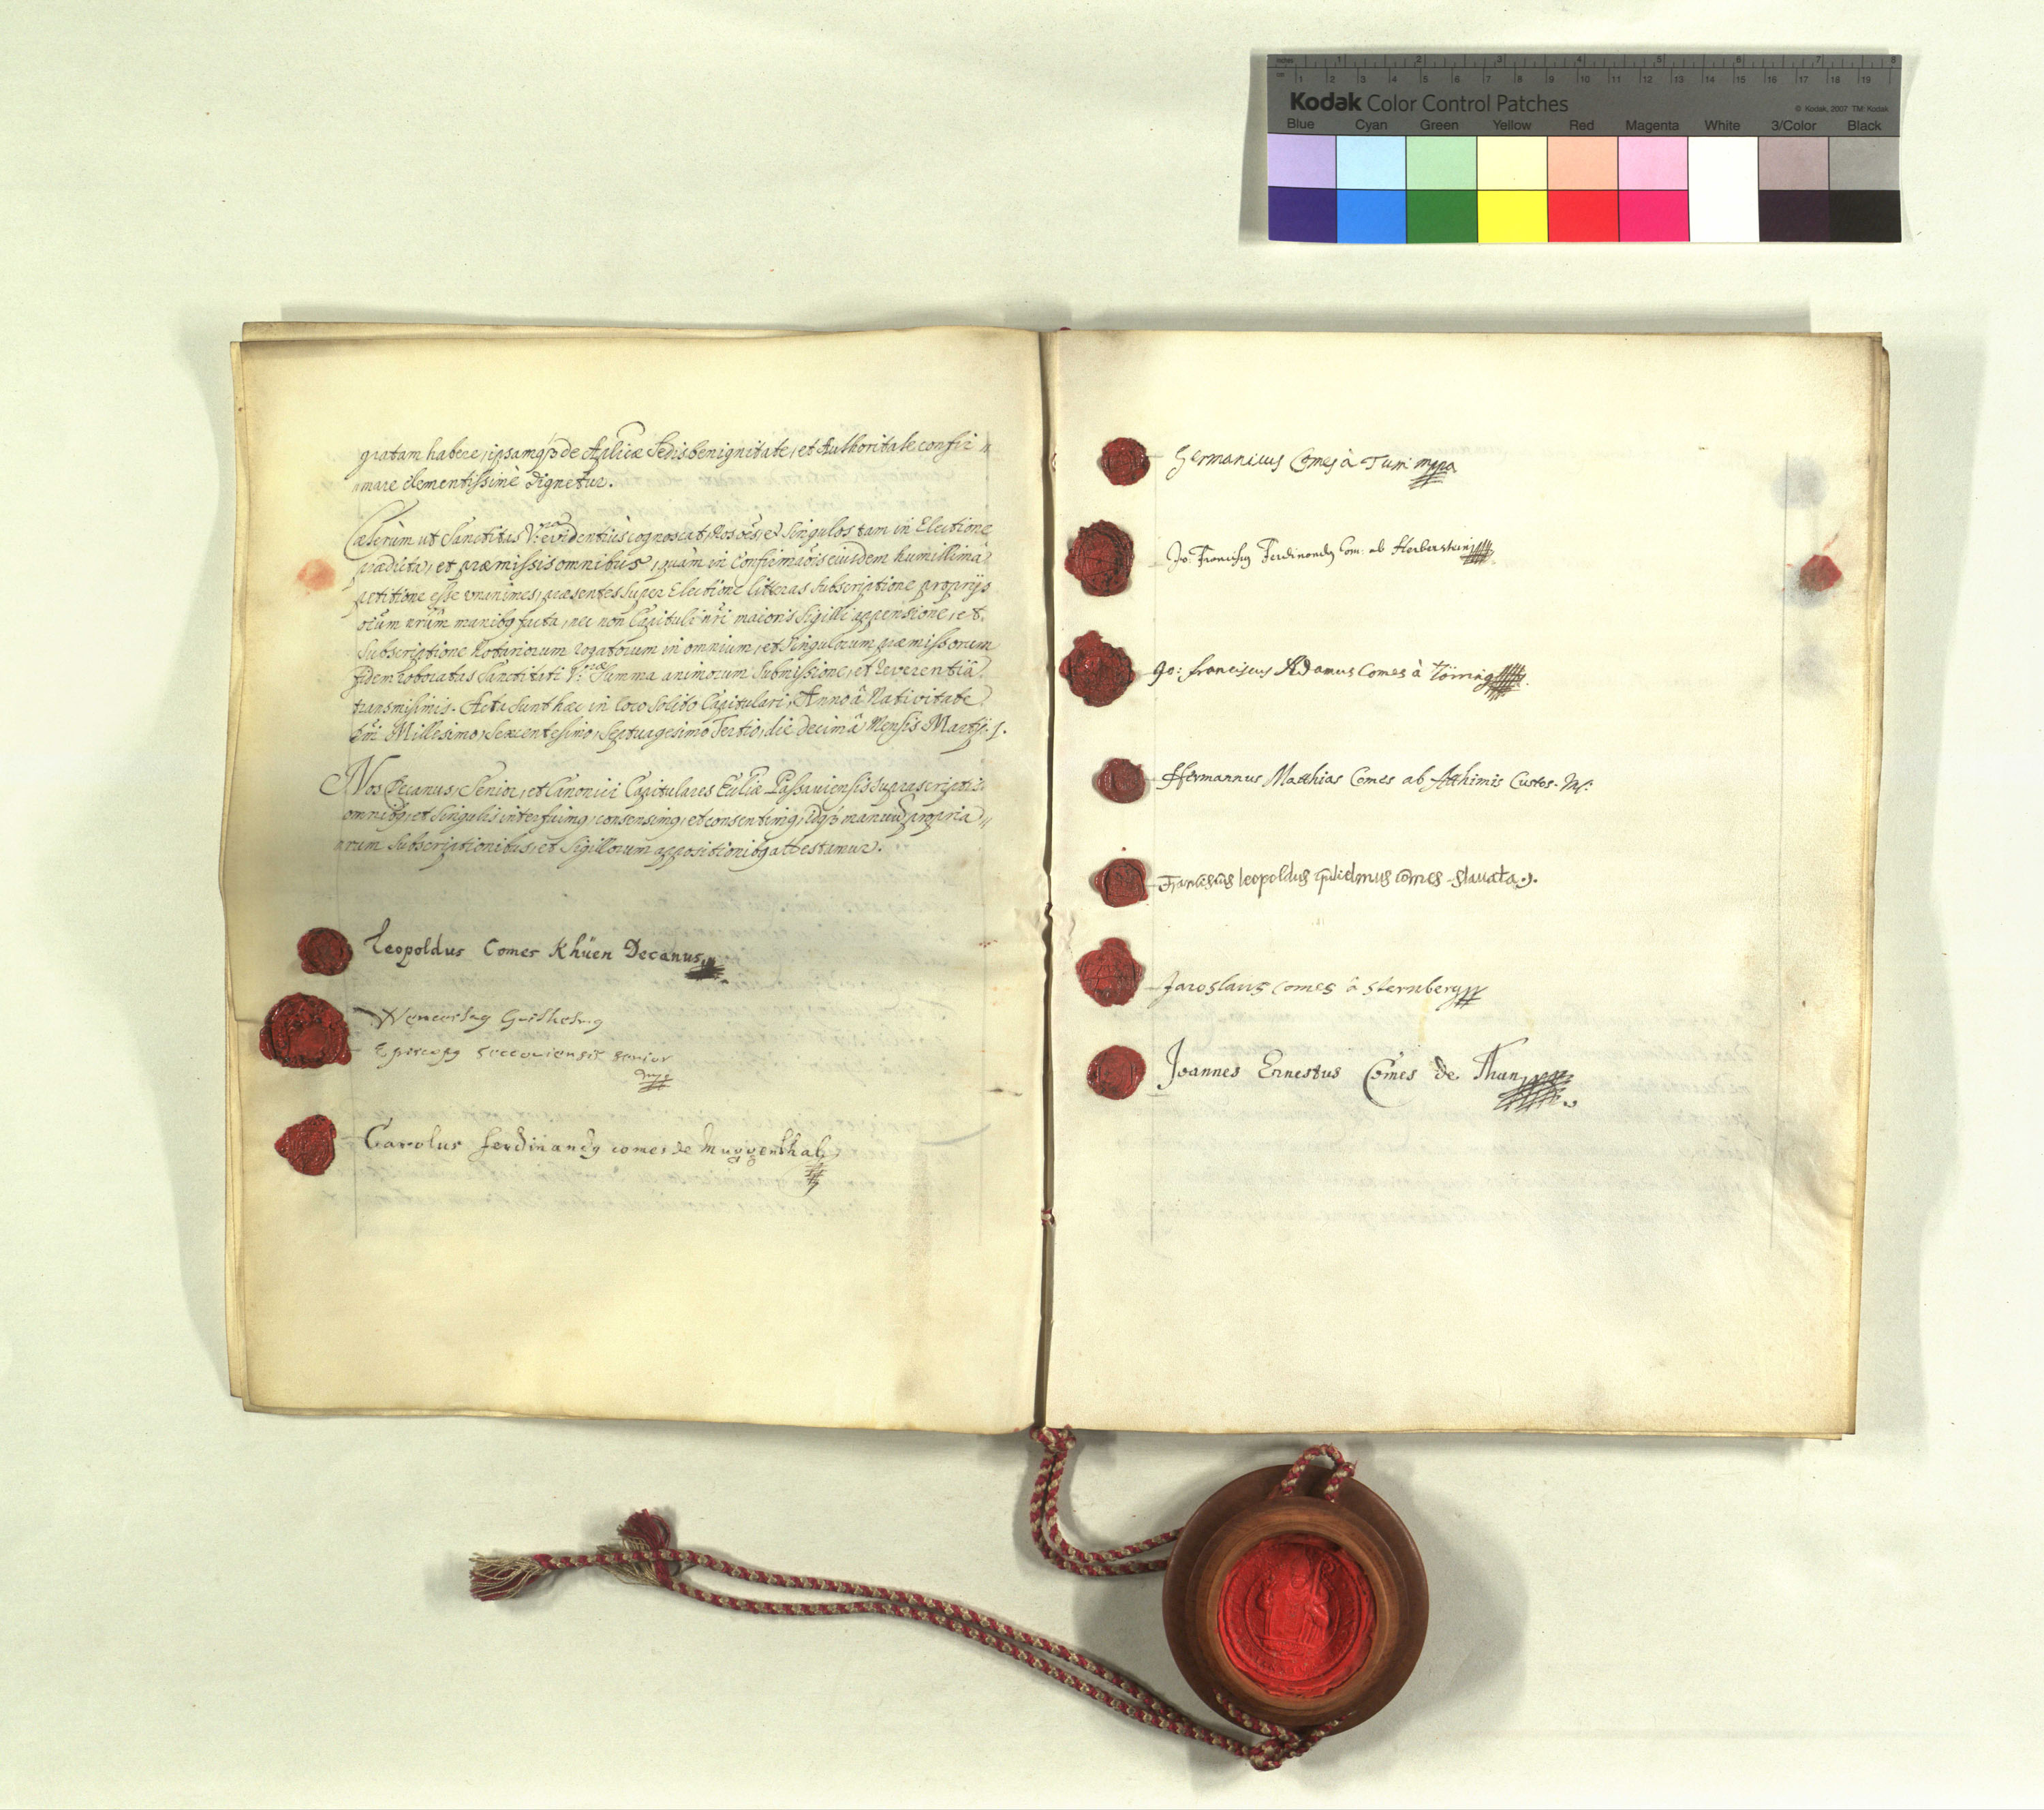 inches 1 2 3 4 5 6 7 8
cm 1 2 3 4 5 6 7 8 9 10 11 12 13 14 15 16 17 18 19
Kodak Color Control Patches © Kodak, 2007 TM: Kodak
Blue Cyan Green Yellow Red Magenta White 3/Color Black
gratam habere, ipsamqꝫ de Aplicæ Sedis benignitate, et Authoritate confir„
„mare clementissimè dignetur.
Cæterùm ut Sanctitas V:ra evidentiùs cognoscat, Nos oēs, et Singulos tam in Electione
prædicta, et præmissis omnibus, quàm in Confirmaōis eiusdem humillimâ
petitione esse unanimes, præsentes super Electione litteras subscriptione proprijs
oīum nrūm manibꝰ facta, nec non Capituli nr̃i maioris Sigilli appensione, et
Subscriptione Notariorum rogatorum in omnium, et Singulorum præmissorum
fidem roboratas Sanctitati V:ræ Summa animorum Submissione, et reverentiâ
transmisimis. Acta sunt hæc in loco solito Capitulari, Anno â Nativitate
Dn̄i Millesimo, Sexcentesimo, Septuagesimo Tertio, die decimâ Mensis Martij.
Nos Decanus, Senior, et Canonici Capitulares Ecliæ Passauiensis suprascriptis
omnibꝰ, et Singulis interfuimꝰ, consensimꝰ, et consentimꝰ, idqꝫ manuū propria„
„rum Subscriptionibus, et Sigillorum appositionibꝰ attestamur.
Leopoldus Comes Khüen Decanus
Wenceslaꝰ Guilhelmꝰ
Episcopꝰ Seccouiensis senior
mp
Carolus ferdinandꝰ comes de Muggenthal
Germanicus Comes à Turri mppa
Jo: Franciscꝰ Ferdinandꝰ Com: ab Herberstein
Jo: franciscus Adamus Comes à Törring
Hermannus Matthias Comes ab Atthimis Custos. M:
Franciscus leopoldus gulielmus comes slauata.
Jaroslaus comes â Sternberg
Joannes Ernestus Comes de Thun